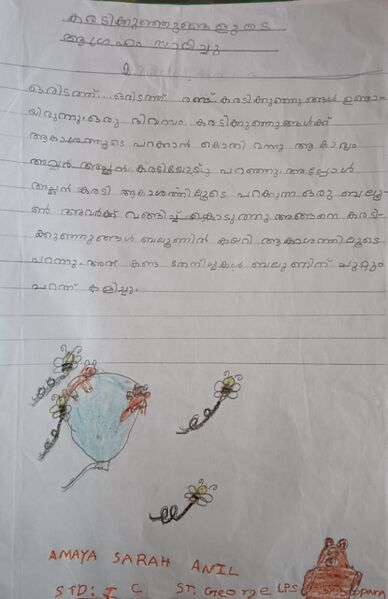 കരടിക്കുഞ്ഞുങ്ങളുടെ
ആഗ്രഹം സാധിച്ചു
ഒരിടത്ത്... ഒരിടത്ത് രണ്ട് കരടിക്കുഞ്ഞുങ്ങൾ ഉണ്ടാ
യിരുന്നു. ഒരു ദിവസം കരടിക്കുഞ്ഞുങ്ങൾക്ക്
ആകാശത്തൂടെ പറക്കാൻ കൊതി വന്നു ആ കാര്യം
അവർ അച്ഛൻ കരടിയോട് പറഞ്ഞു. അപ്പോൾ
അച്ഛൻ കരടി ആകാശത്തിലൂടെ പറക്കുന്ന ഒരു ബലൂ
ൺ അവർക്ക് വാങ്ങിച്ച് കൊടുത്തു. അങ്ങനെ കരടി-
ക്കുഞ്ഞുങ്ങൾ ബലൂണിൽ കയറി ആകാശത്തിലൂടെ
പറന്നു. അത് കണ്ട തേനീച്ചകൾ ബലൂണിന് ചുറ്റും
പറന്ന് കളിച്ചു.
AMAYA SARAH ANIL
STD: I C ST. George LPS